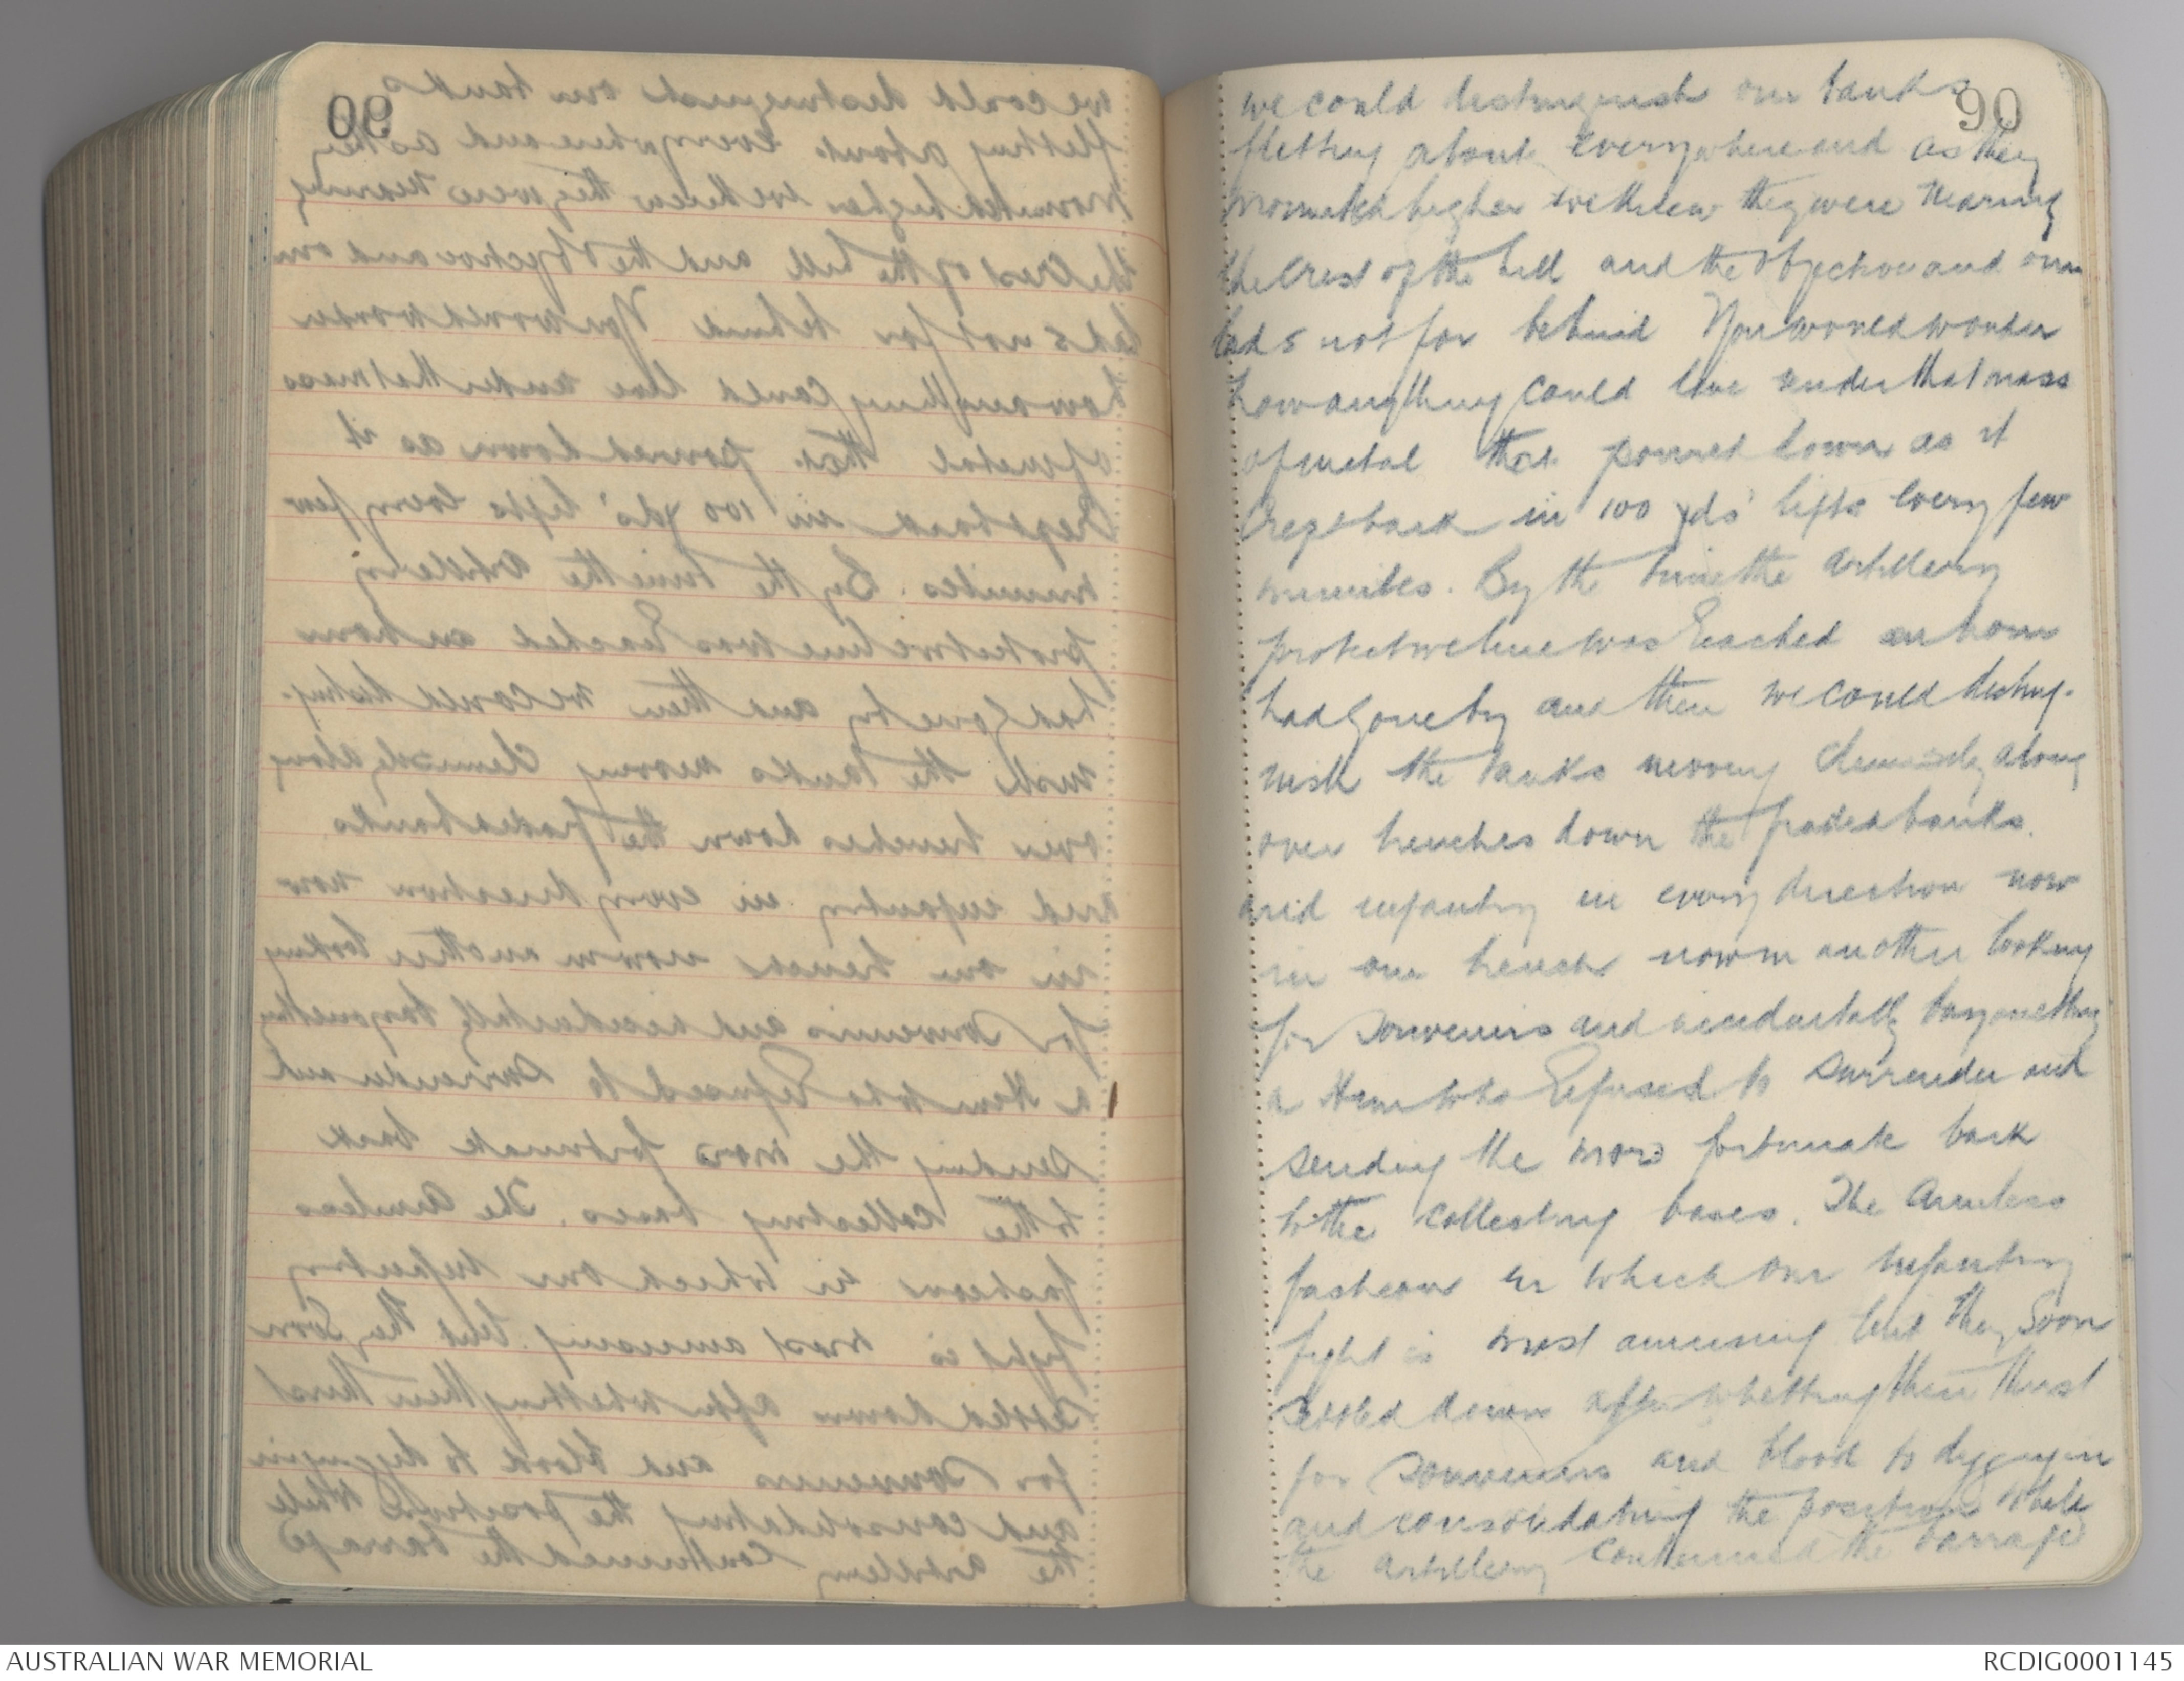 90
we could distinguish our tanks
flitting about everywhere and as they
mounted higher we knew they were nearing
the Crest of the hill and the Objective and our
lads not far behind You would wonder
how anything could live under that mass
of metal that poured down as it
crept back in 100 yds' lifts every few
minutes. By the time the artillery
protective line was Reached an hour
had gone by and then we could disting-
uish the tanks moving clumsily along
over trenches down the banks
and infantry in every direction now
in one trench now in another looking
for Souvenirs and accidentally bayonetting
a Hun who Refused to Surrender and
sending the more fortunate back
to the collecting bases. The Aimless
fashion in which our infantry
fight is most amusing but they Soon
settled down after whetting their thirst
for Souvenirs and blood to digging in
and consolidating the position while
the artillery continued the barrage
AUSTRALIAN WAR MEMORIAL
RCDIG0001145